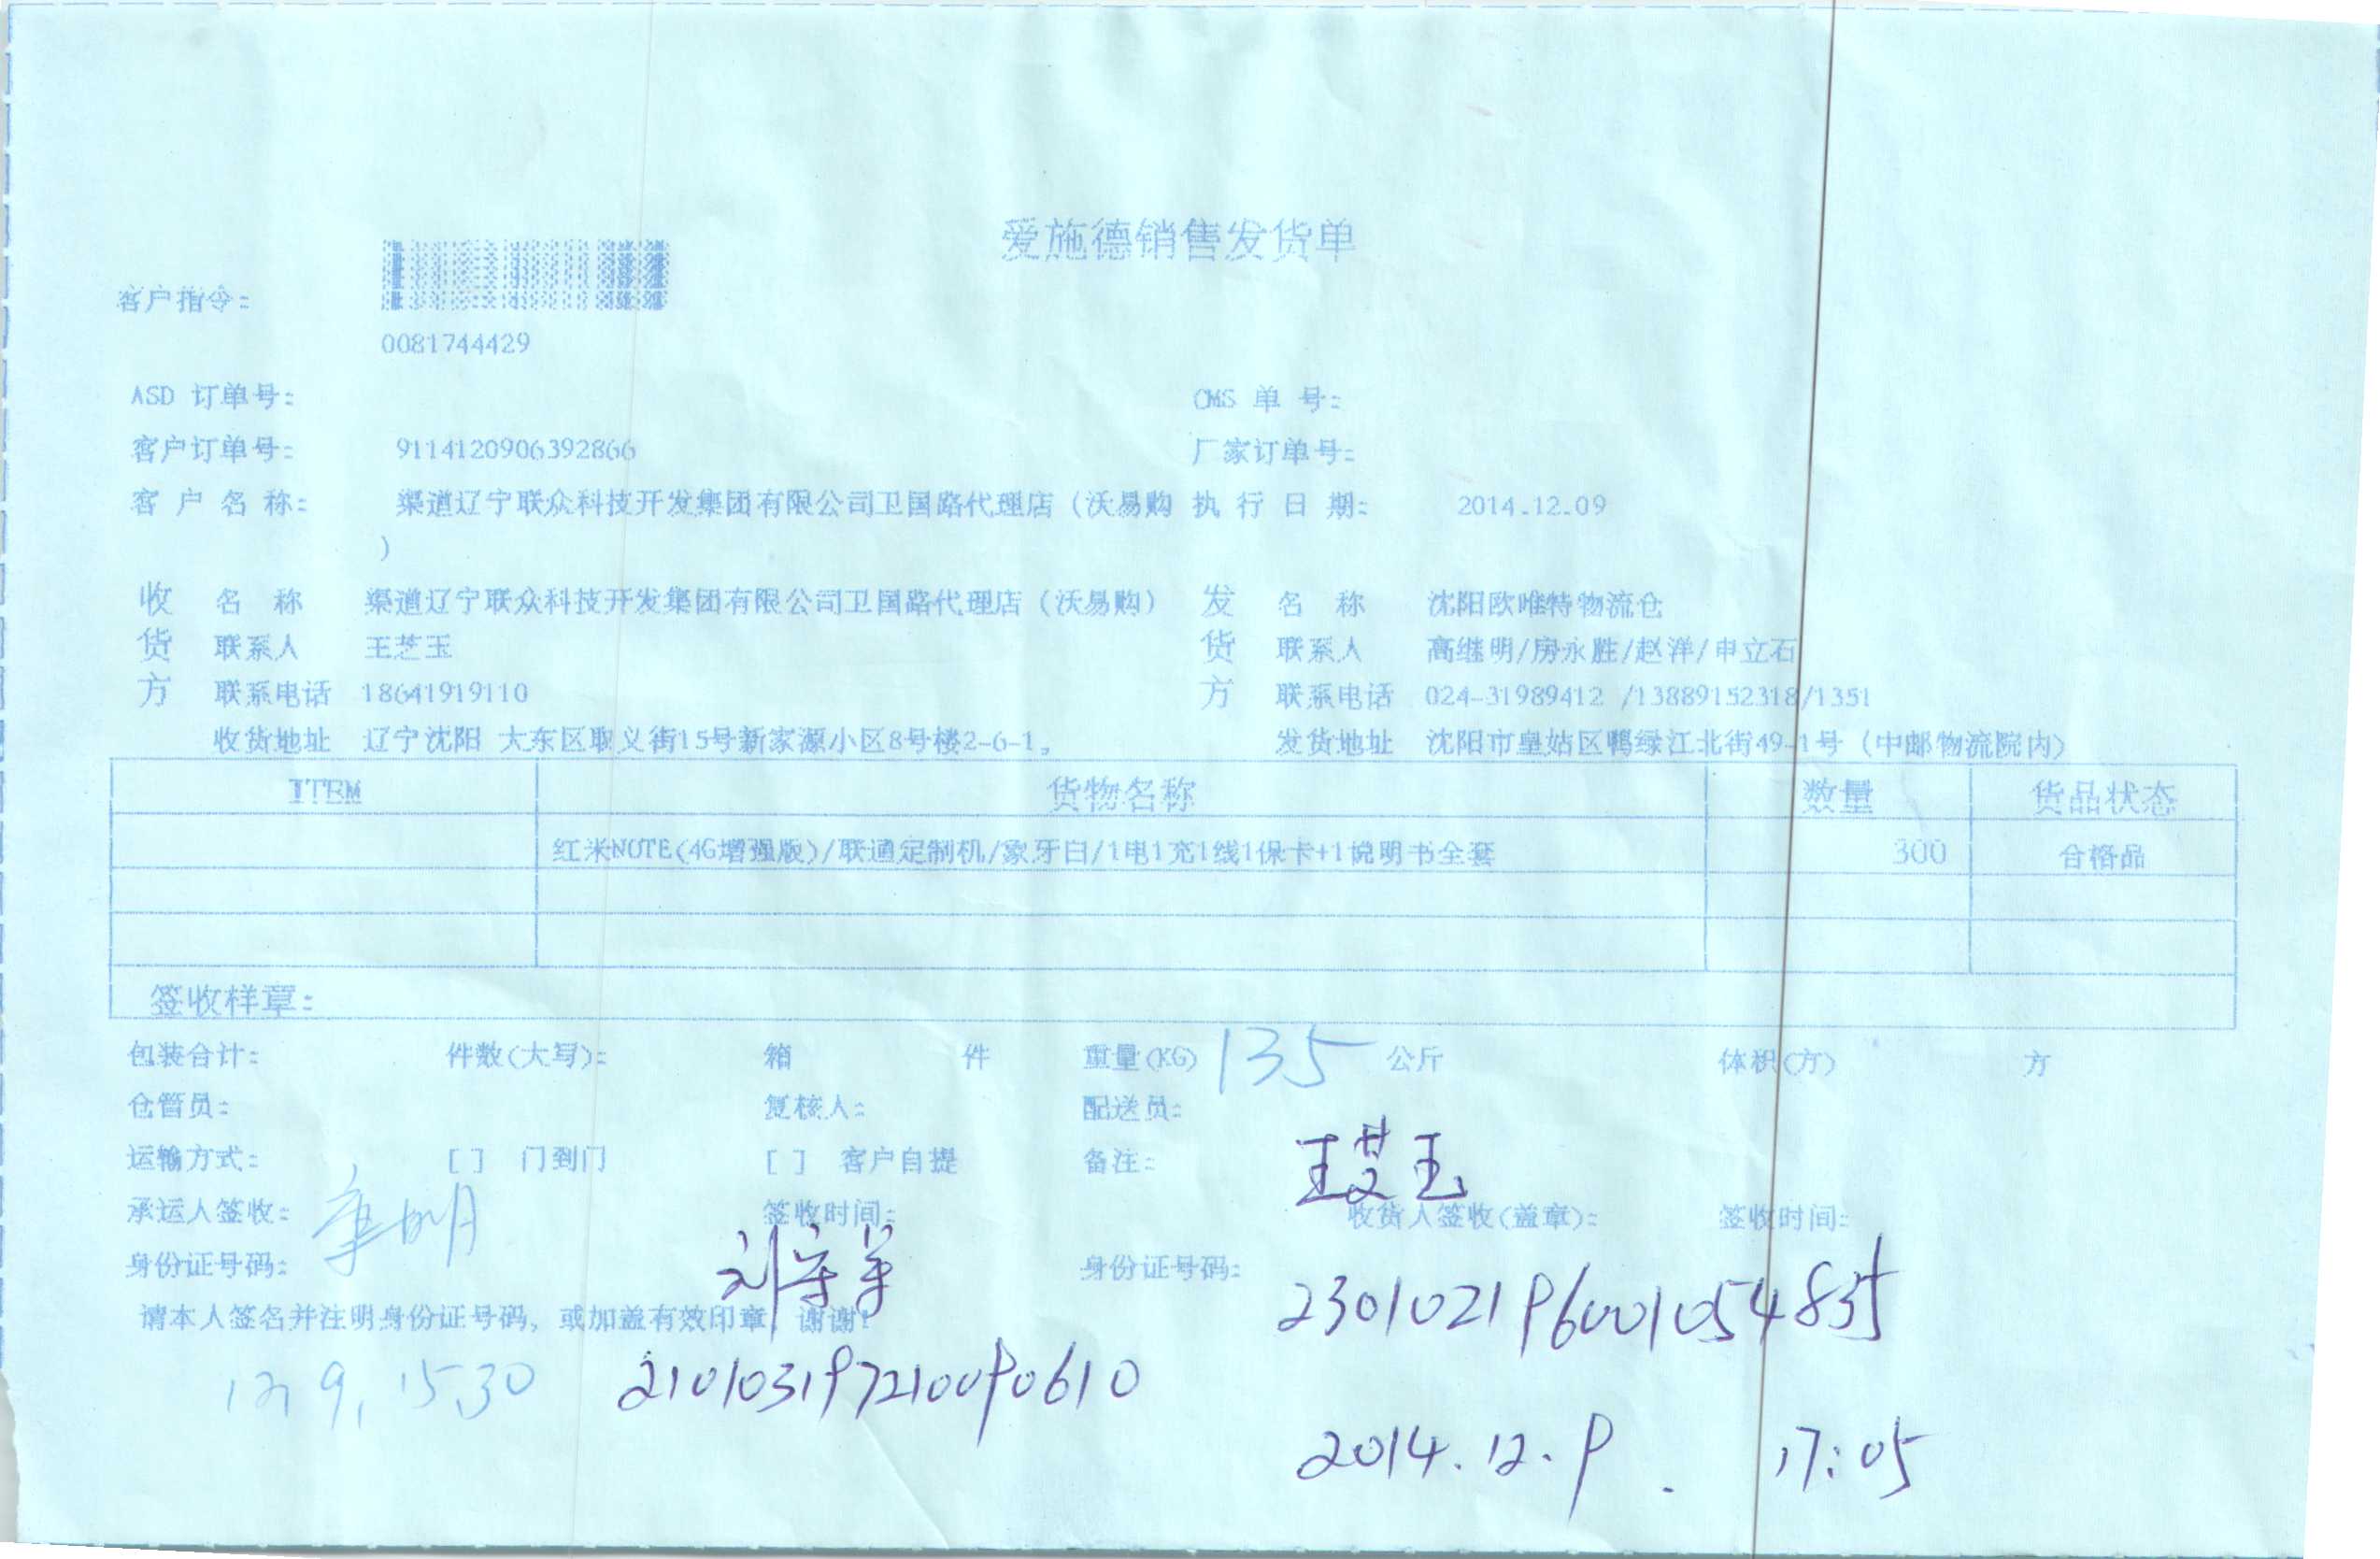 爱施德销售发货单
客户指令:
0081744429
ASD 订单号: CMS 单 号:
客户订单号: 9114120906392866 厂家订单号:
客 户 名 称: 渠道辽宁联众科技开发集团有限公司卫国路代理店（沃易购 执 行 日 期: 2014.12.09
)
收 名 称 渠道辽宁联众科技开发集团有限公司卫国路代理店（沃易购） 发 名 称 沈阳欧唯特物流仓
货 联系人 王芝玉 货 联系人 高继明/房永胜/赵洋/申立石
方 联系电话 18641919110 方 联系电话 024-31989412 /13889152318/1351
收货地址 辽宁沈阳 大东区取义街15号新家源小区8号楼2-6-1。 发货地址 沈阳市皇姑区鸭绿江北街49-1号（中邮物流院内）
ITEM 货物名称 数量 货品状态
红米NOTE(4G增强版)/联通定制机/象牙白/1电1充1线1保卡+1说明书全套 300 合格品
签收样章:
包装合计: 件数(大写): 箱 件 重量(KG) 135 公斤 体积(方) 方
仓管员: 复核人: 配送员:
运输方式: [ ] 门到门 [ ] 客户自提 备注:
承运人签收: 签收时间: 收货人签收(盖章): 签收时间:
身份证号码: 身份证号码:
230102196001054835
请本人签名并注明身份证号码，或加盖有效印章，谢谢!
15.30 210103197210090610
2014.12.9. 17:05